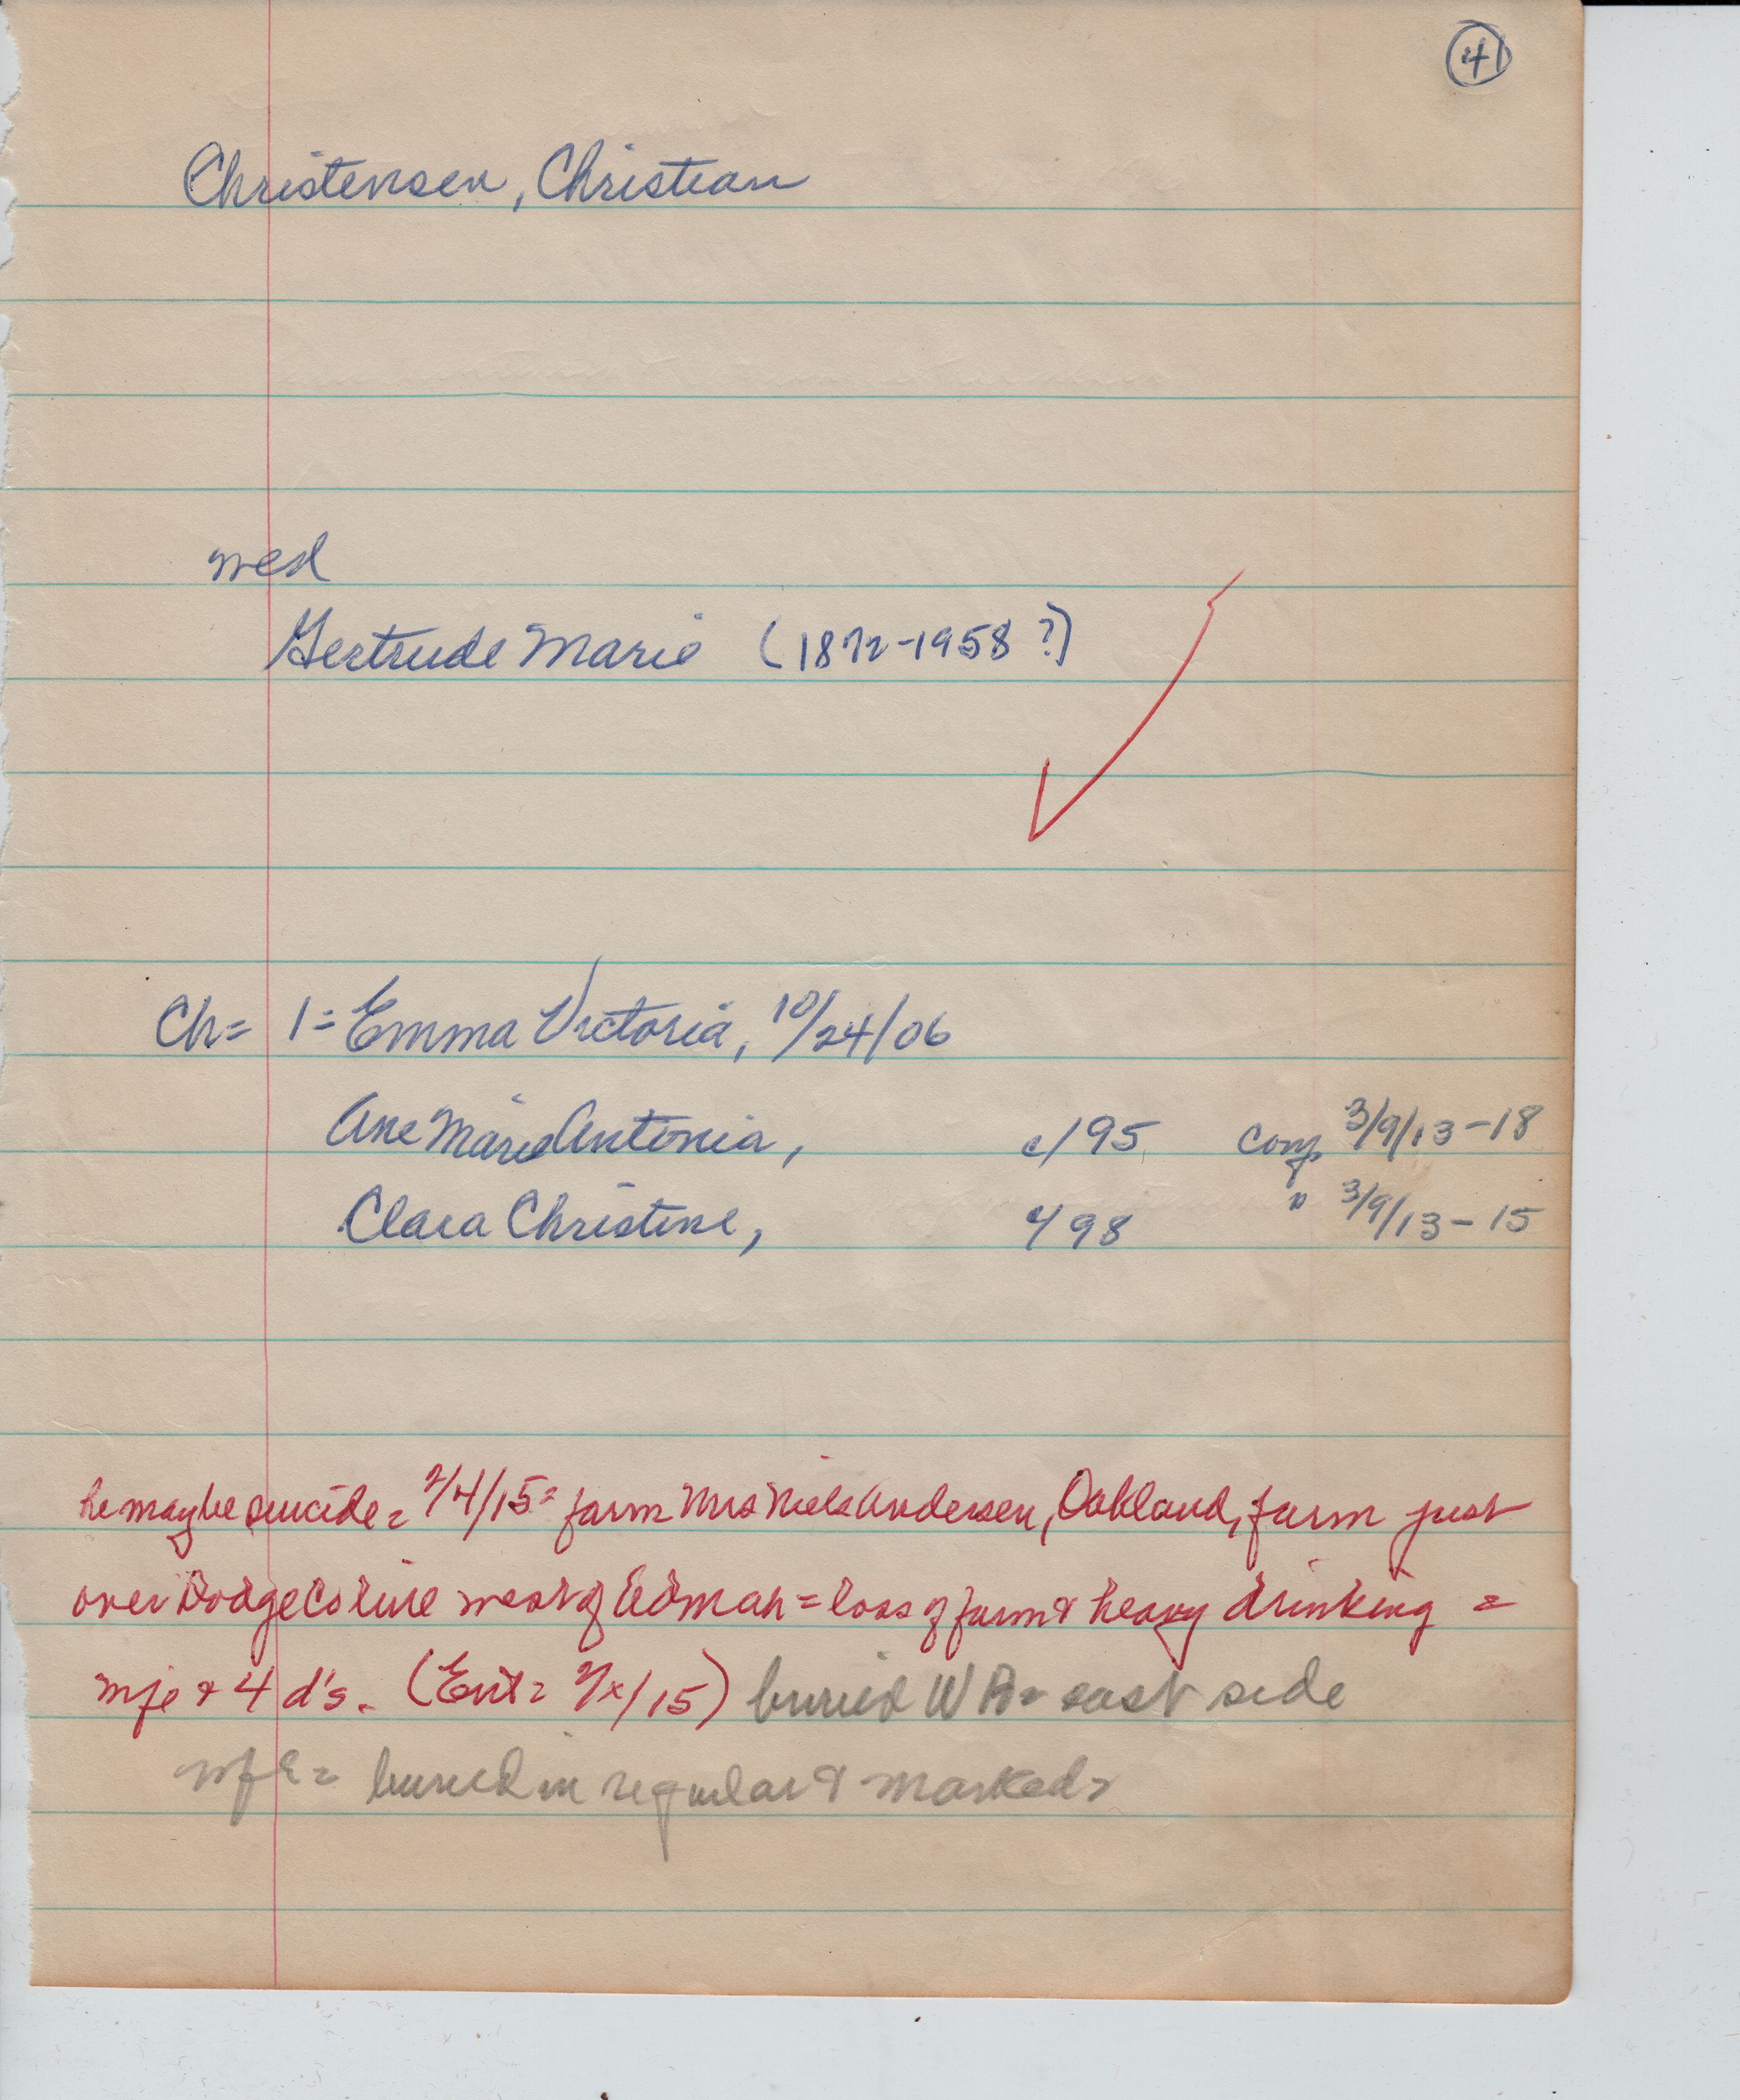 41
Christensen, Christian
wed
Gertrude Marie (1872-1958?)
Ch= 1= Emma Victoria, 10/24/06
Ane Marie Antonia, c/95 conf 3/9/13-18
Clara Christine, c/98 " 3/9/13-15
he maybe suicide= 2/4/15= farm Mrs Niels Andersen, Oakland, farm just
over Dodge Co line west of = loss of farm & heavy drinking =
wfe & 4 d's. (Ent= /15) buried = east side
wfe= buried in regular & marked=